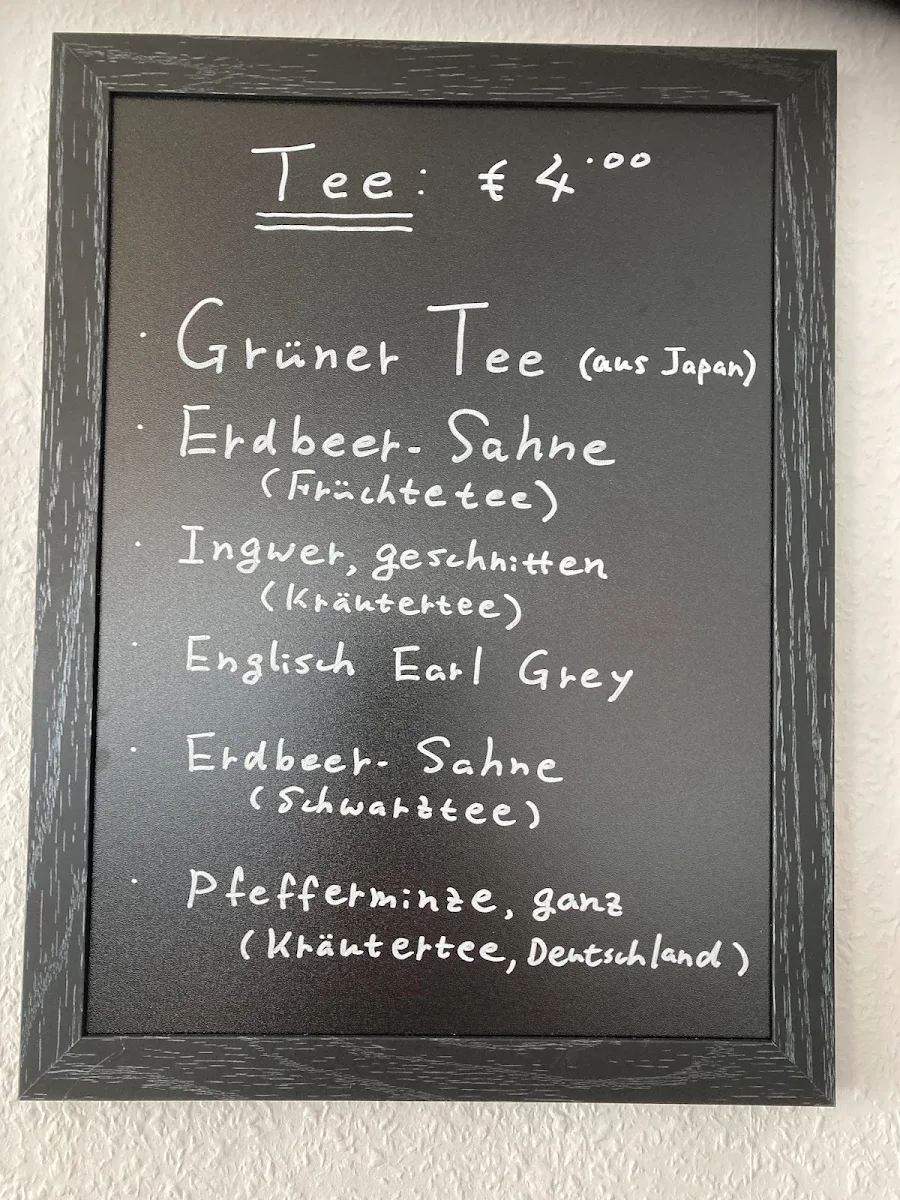 Tee: € 4.00
· Grüner Tee (aus Japan)
· Erdbeer-Sahne
(Früchtetee)
· Ingwer, geschnitten
(Kräutertee)
· Englisch Earl Grey
· Erdbeer-Sahne
(Schwarztee)
· Pfefferminze, ganz
(Kräutertee, Deutschland)